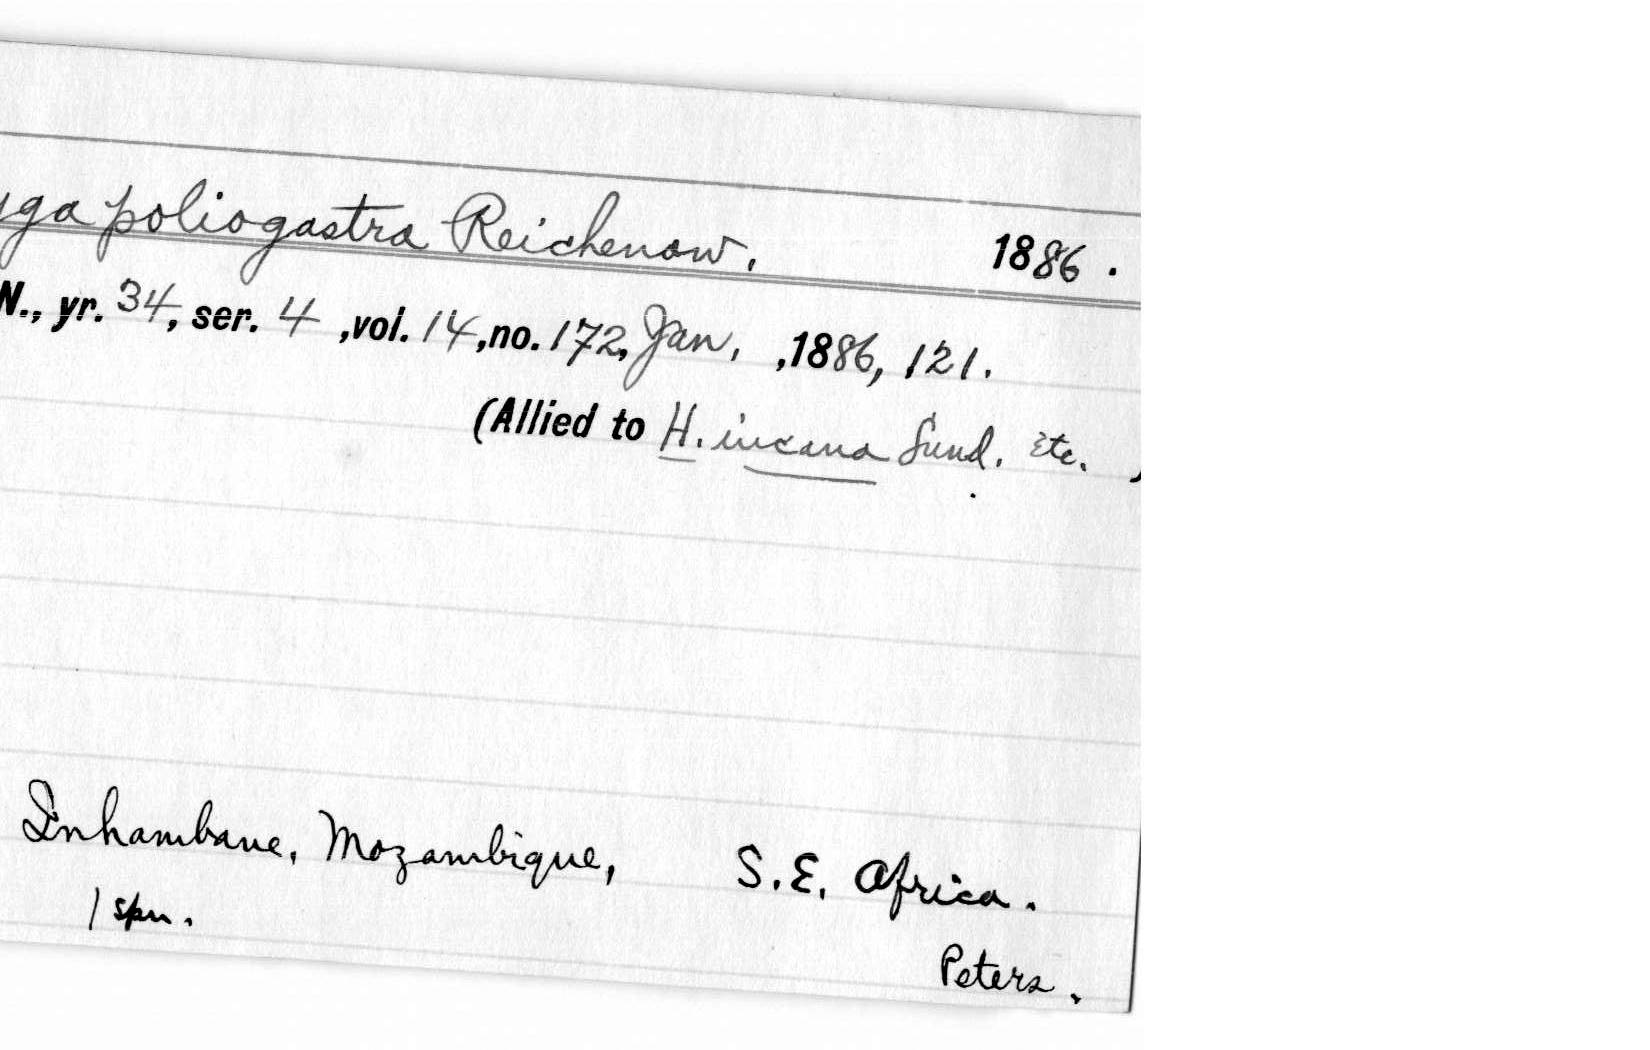 yga poliogastra Reichenow, 1886.
N., yr. 34, ser. 4, vol. 14, no. 172, Jan., 1886, 121.
(Allied to H. incana Sund. Etc. )
Inhambane, Mozambique, S.E. Africa.
1 spm.
Peters.